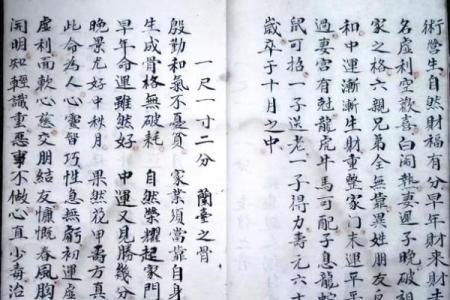 術營生自然財福有分早年財來財去
名虛利空歡喜白閙熱妻遲子晚破祖
家之格六親兄弟全無靠異姓朋友
和中運漸漸生財重整家門末運平平
過妻宮有尅龍虎牛馬可配子息龍蛇
鼠可招一子送老一子得力壽元六十
歲卒于十月之中
一尺一寸二分 蘭臺之骨
殷勤和氣不憂貧 家業須當靠自身
生成骨格無破耗 自然榮耀起家門
早年命運雖然好 中運又見勝幾分
晚景尤好中秋月 果然花甲壽方真
此命為人心靈智巧性急無虧初運虛
虛利而軟心慈交朋結友慷慨春風胸
開明知輕識重惡事不做心直少毒治